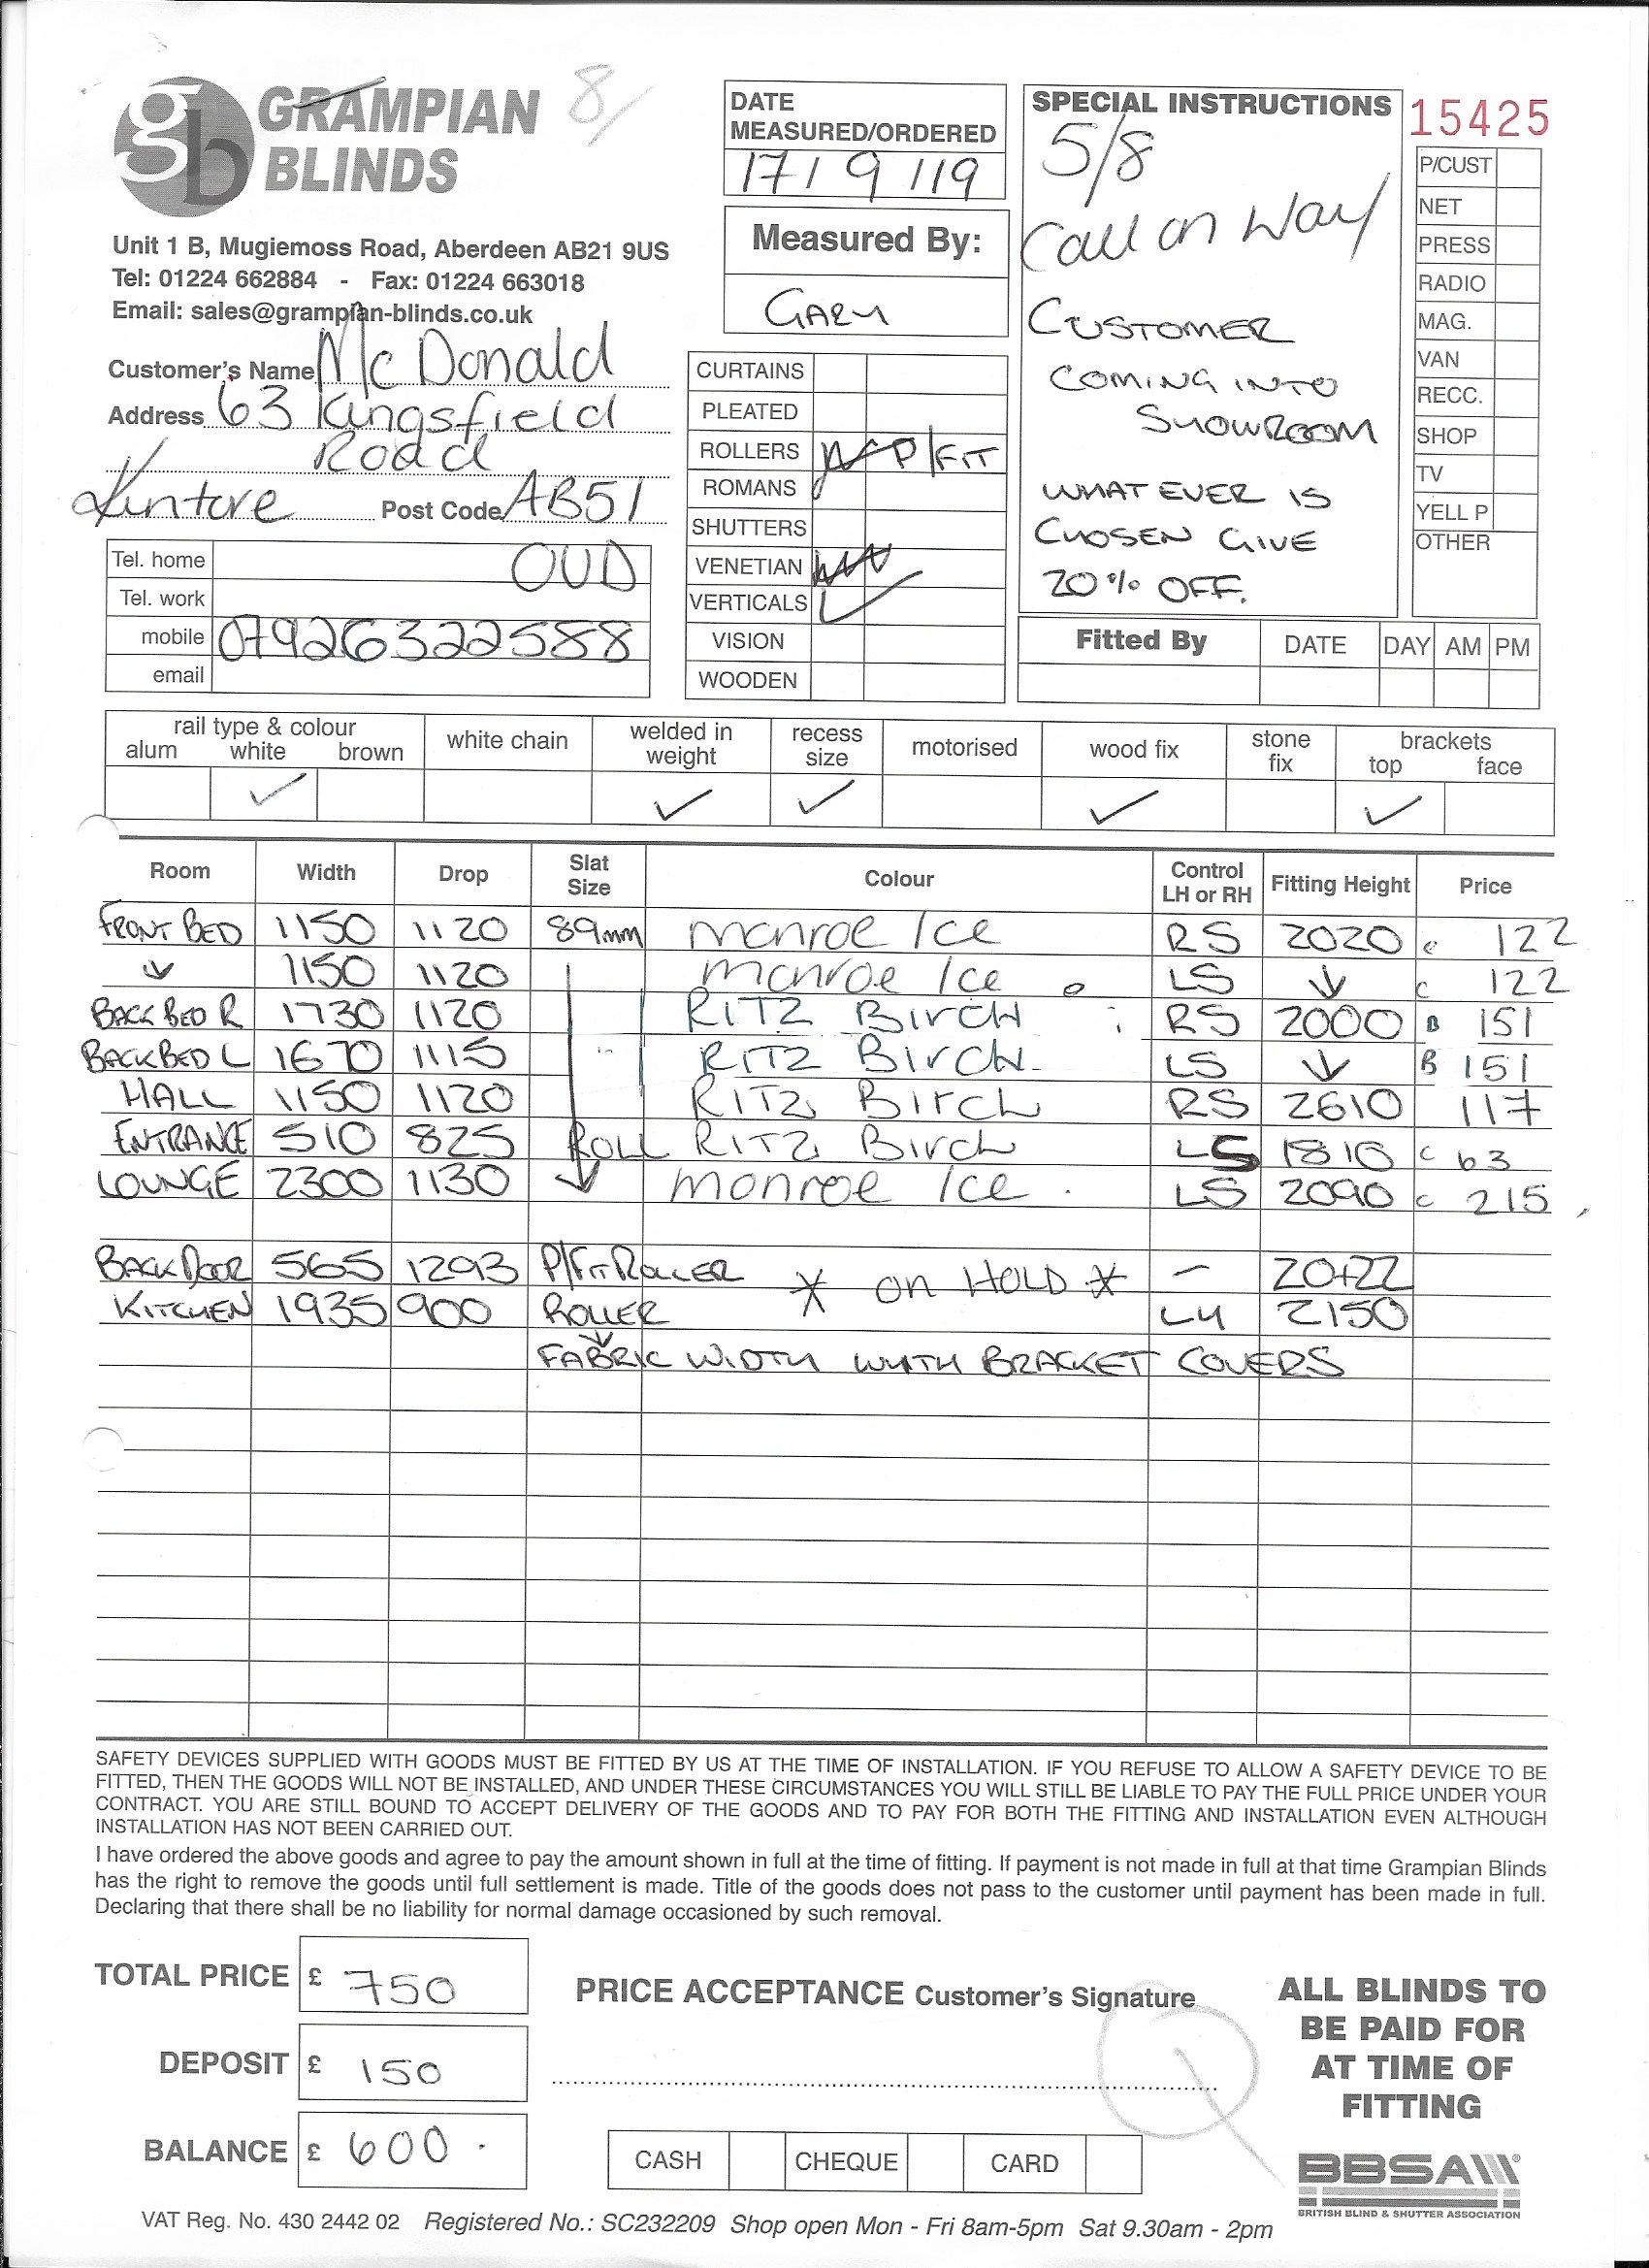 GRAMPIAN BLINDS
gb
8/
Unit 1 B, Mugiemoss Road, Aberdeen AB21 9US
Tel: 01224 662884 - Fax: 01224 663018
Email: sales@grampian-blinds.co.uk
Customer's Name McDonald
Address 63 Kingsfield
Road
Kintore Post Code AB51
OUD
Tel. home
Tel. work
mobile 07926322588
email
DATE
MEASURED/ORDERED
17/9/19
Measured By:
GARY
CURTAINS
PLEATED
ROLLERS P/FIT
ROMANS
SHUTTERS
VENETIAN
VERTICALS ✓
VISION
WOODEN
SPECIAL INSTRUCTIONS
5/8
Call on Way
CUSTOMER
COMING INTO
SHOWROOM
WHAT EVER IS
CHOSEN GIVE
20% OFF.
15425
P/CUST
NET
PRESS
RADIO
MAG.
VAN
RECC.
SHOP
TV
YELL P
OTHER
Fitted By DATE DAY AM PM
rail type & colour
alum white brown
white chain
welded in weight
recess size
motorised
wood fix
stone fix
brackets
top face
✓ ✓ ✓ ✓ ✓
Room Width Drop Slat Size Colour Control LH or RH Fitting Height Price
FRONT BED 1150 1120 89mm monroe Ice RS 2020 c 122
↓ 1150 1120 monroe Ice LS ↓ c 122
BACK BED R 1730 1120 RITZ BIrCH RS 2000 B 151
BACK BED L 1670 1115 RITZ BIrCH. LS ↓ B 151
HALL 1150 1120 RITZ BIrCH RS 2610 117
ENTRANCE 510 825 ROLL RITZ BIrCH LS 1810 c 63
LOUNGE 2300 1130 monroe Ice. LS 2090 c 215
BACK DOOR 565 1293 P/FIT ROLLER * ON HOLD * – 20+22
KITCHEN 1935 900 ROLLER LH 2150
↓
FABRIC WIDTH WITH BRACKET COVERS
SAFETY DEVICES SUPPLIED WITH GOODS MUST BE FITTED BY US AT THE TIME OF INSTALLATION. IF YOU REFUSE TO ALLOW A SAFETY DEVICE TO BE
FITTED, THEN THE GOODS WILL NOT BE INSTALLED, AND UNDER THESE CIRCUMSTANCES YOU WILL STILL BE LIABLE TO PAY THE FULL PRICE UNDER YOUR
CONTRACT. YOU ARE STILL BOUND TO ACCEPT DELIVERY OF THE GOODS AND TO PAY FOR BOTH THE FITTING AND INSTALLATION EVEN ALTHOUGH
INSTALLATION HAS NOT BEEN CARRIED OUT.
I have ordered the above goods and agree to pay the amount shown in full at the time of fitting. If payment is not made in full at that time Grampian Blinds
has the right to remove the goods until full settlement is made. Title of the goods does not pass to the customer until payment has been made in full.
Declaring that there shall be no liability for normal damage occasioned by such removal.
TOTAL PRICE £ 750
DEPOSIT £ 150
BALANCE £ 600.
PRICE ACCEPTANCE Customer's Signature
CASH CHEQUE CARD
ALL BLINDS TO
BE PAID FOR
AT TIME OF
FITTING
BBSA
BRITISH BLIND & SHUTTER ASSOCIATION
VAT Reg. No. 430 2442 02 Registered No.: SC232209 Shop open Mon - Fri 8am-5pm Sat 9.30am - 2pm